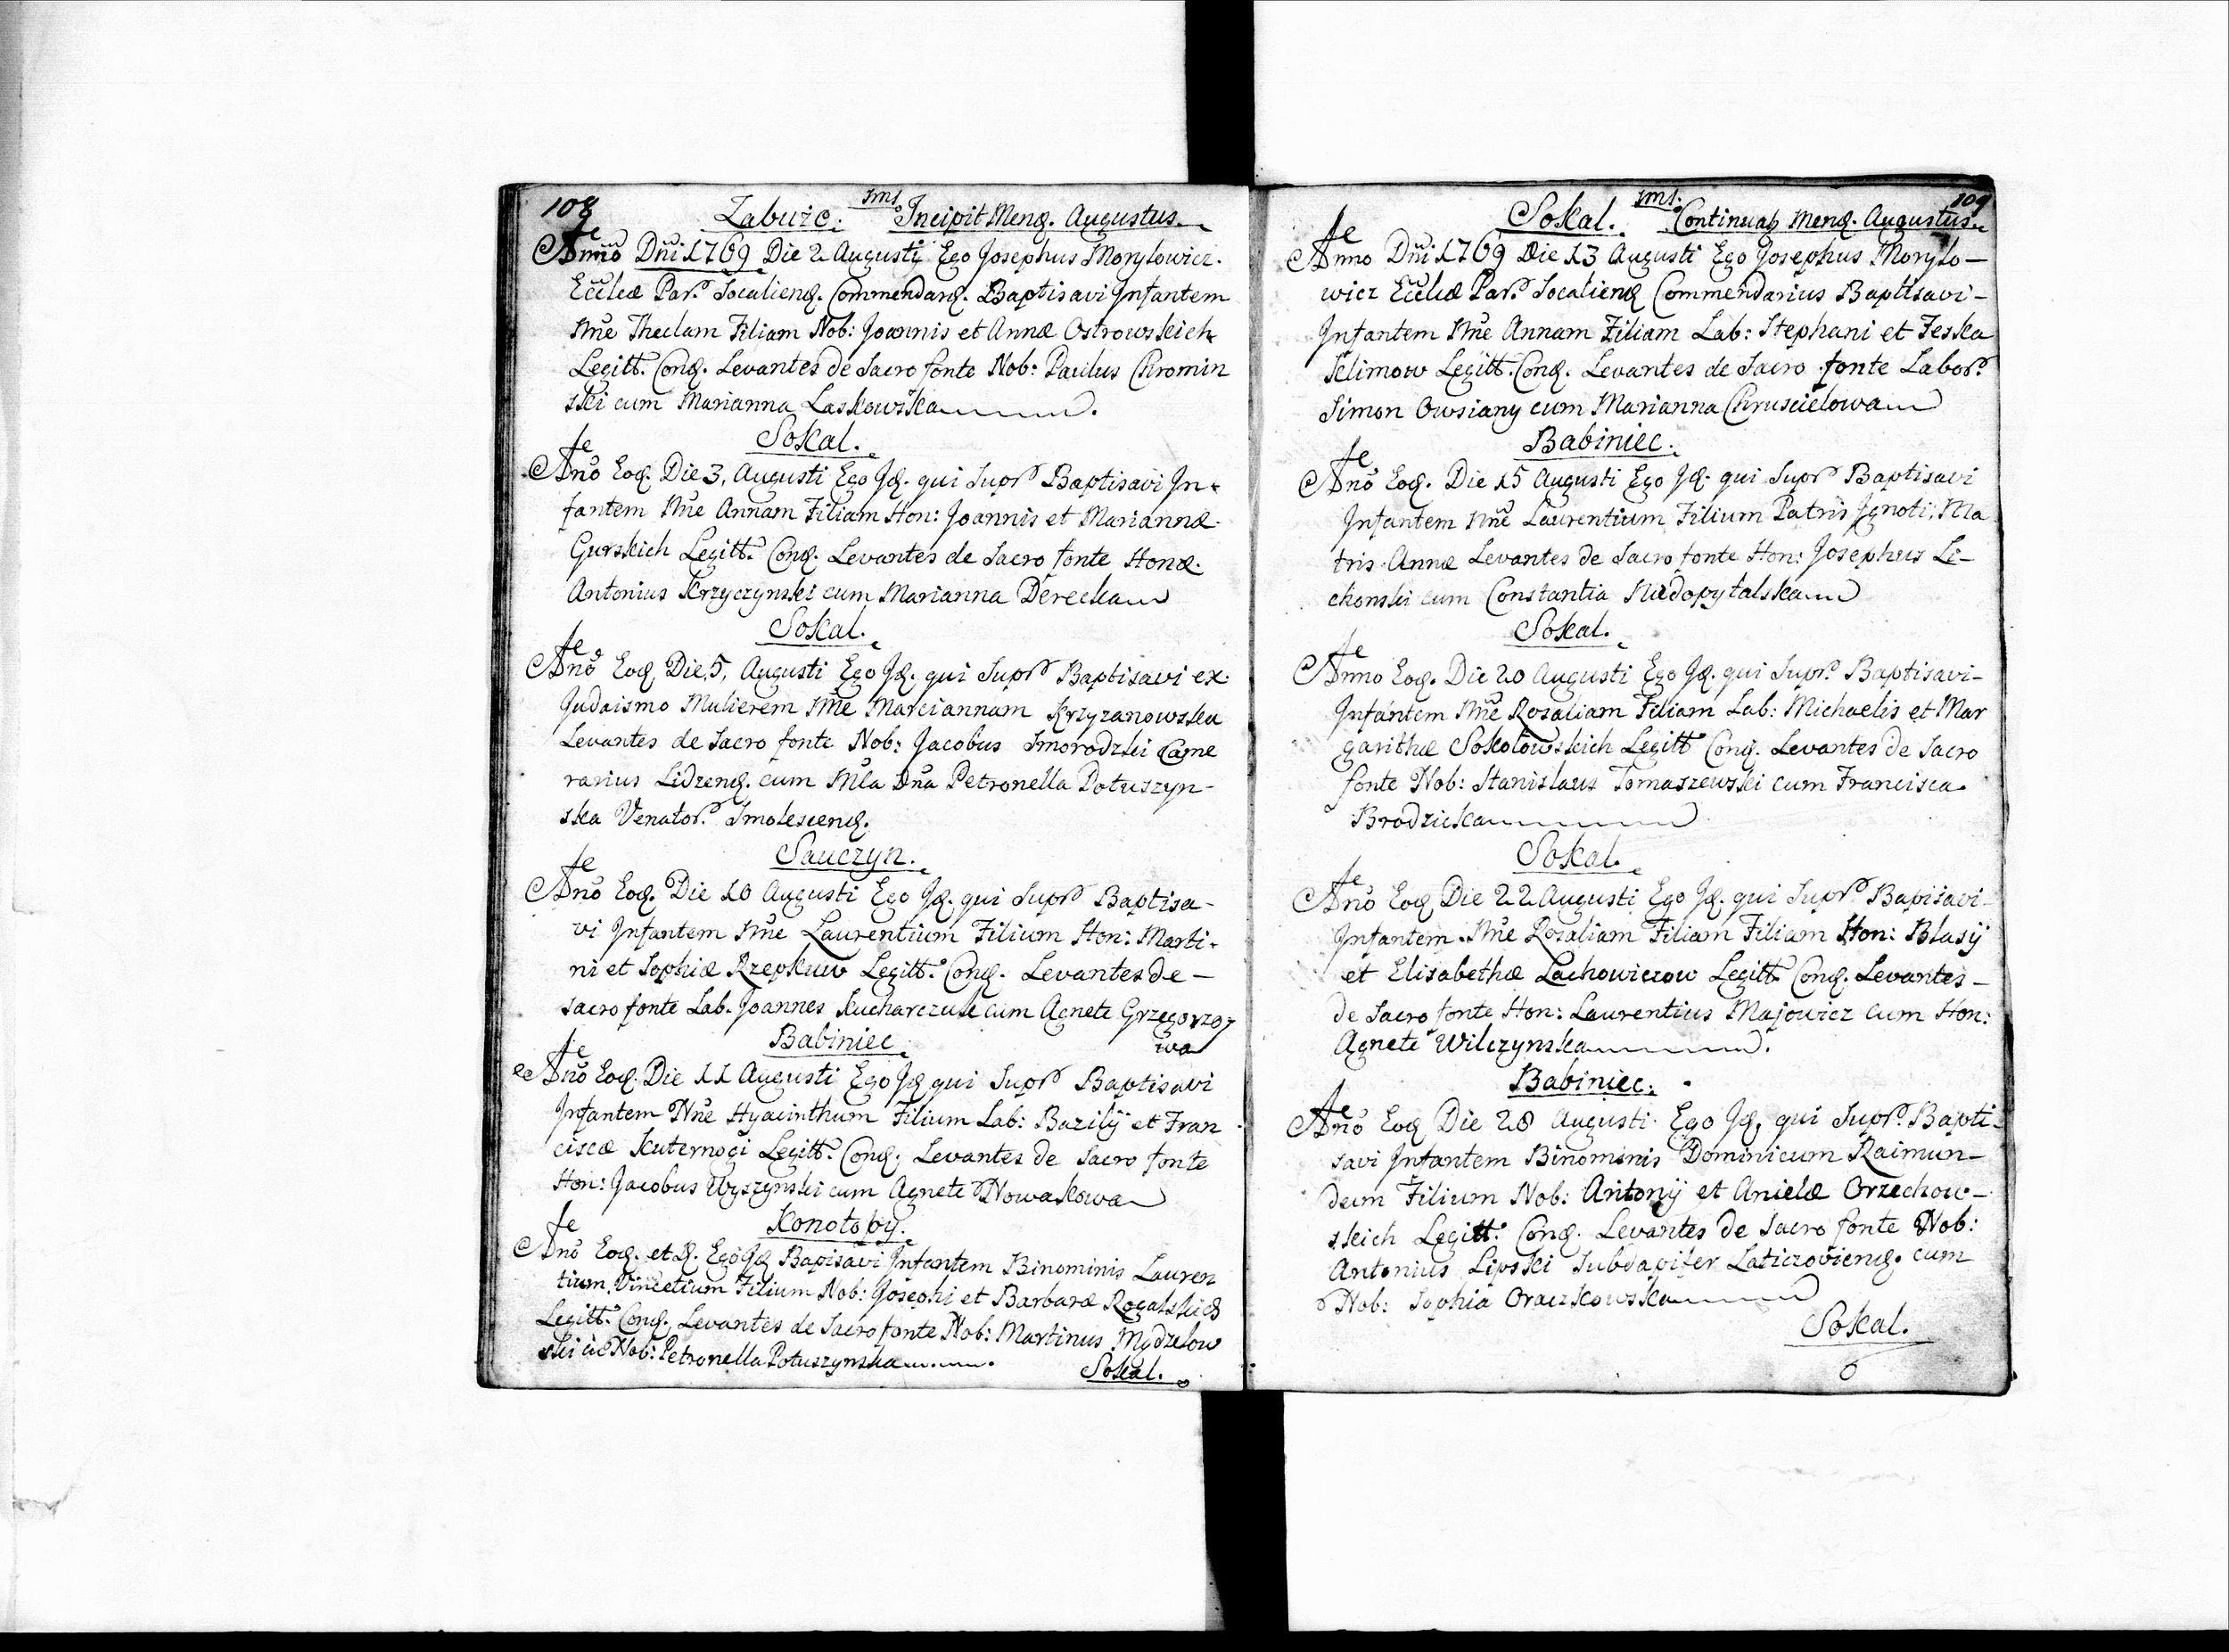 108
Zabuże. Incipit Mens. Augustus
Anno Dni 1769 Die 2 Augusti Ego Josephus Morylowicz.
Eccliæ Par. Socaliens. Commendars. Baptisavi Infantem
Nne Theclam Filiam Nob: Joannis et Annæ Ostrowskich
Legitt. Cong. Levantes de Sacro fonte Nob: Paulus Chromin
ski cum Marianna Laskowska.
Sokal.
Ano Eod. Die 3, Augusti Ego Id. qui Supr Baptisavi In-
fantem Nne Annam Filiam Hon: Joannis et Mariannæ
Gurskich Legitt. Cong. Levantes de Sacro fonte Hons.
Antonius Krzyczynski cum Marianna Derecka
Sokal.
Ano Eod. Die, 5, Augusti Ego Id. qui Supr Baptisavi ex
Judaismo Mulierem Nne Marciannam Krzyzanowska
Levantes de Sacro fonte Nob: Jacobus Smorodzki Came
rarius Lidzens. cum Mla Dna Petronella Potuszyn-
ska Venator. Smolescens.
Sauczyn.
Ano Eod. Die 10 Augusti Ego Id. qui Supr Baptisa-
vi Infantem Nne Laurentium Filium Hon: Marti-
ni et Sophiæ Rzepkuw Legitt. Cong. Levantes de-
sacro fonte Lab. Joannes Kucharczuk cum Agnete Grzegorzo
wa
Babiniec.
Ano Eod. Die 11 Augusti Ego Id qui Supr Baptisavi
Infantem Nne Hyacinthum Filium Lab: Bazilij et Fran
ciscæ Kuternogi Legitt. Cong. Levantes de Sacro fonte
Hon: Jacobus Wyszynski cum Agnete Nowakowa
Konotopy.
Ano Eod. et D. Ego Id Bapisavi Infantem Binominis Lauren
tium, Vincetium Filium Nob: Josephi et Barbaræ Rogalskich
Legitt. Cong. Levantes de Sacro fonte Nob: Martinus Mydzelow
ski cũ Nob: Petronella Potuszynska.
Sokal.
109
Sokal. Continuat Mens. Augustus
Anno Dni 1769 Die 13 Augusti Ego Josephus Morylo-
wicz Eccliæ Par. Socaliens Commendarius Baptisavi-
Infantem Nne Annam Filiam Lab: Stephani et Feska
Klimow Legitt. Cong. Levantes de Sacro fonte Labor.
Simon Owsiany cum Marianna Chruscielowa
Babiniec.
Ano Eod. Die 15 Augusti Ego Id. qui Supr Baptisavi
Infantem Nne Laurentium Filium Patris Ignoti, Ma
tris Annæ Levantes de Sacro fonte Hon: Josephus Li-
chonski cum Constantia Niedopytalska
Sokal.
Anno Eod. Die 20 Augusti Ego Id. qui Supr. Baptisavi-
Infantem Nne Rozaliam Filiam Lab: Michaelis et Mar
garithæ Sokolowskich Legitt Cong. Levantes de Sacro
fonte Nob: Stanislaus Tomaszewski cum Francisca
Brodzicka
Sokal.
Ano Eod Die 22 Augusti Ego Id. qui Supr. Bapisavi-
Infantem Nne Rozaliam Filiam Filiam Hon: Blasij
et Elisabethæ Lachowiczow Legitt Cong. Levantes-
de Sacro fonte Hon: Laurentius Majowicz cum Hon:
Agnete Wilczynska.
Babiniec.
Ano Eod Die 28 Augusti Ego Id, qui Supr. Bapti-
savi Infantem Binominis Dominicum Raimun-
dum Filium Nob: Antonij et Anielæ Orzechow-
skich Legitt. Cong. Levantes de Sacro fonte Nob:
Antonius Lipski Subdapifer Laticzoviens. cum
Nob: Sophia Oraczkowska
Sokal.